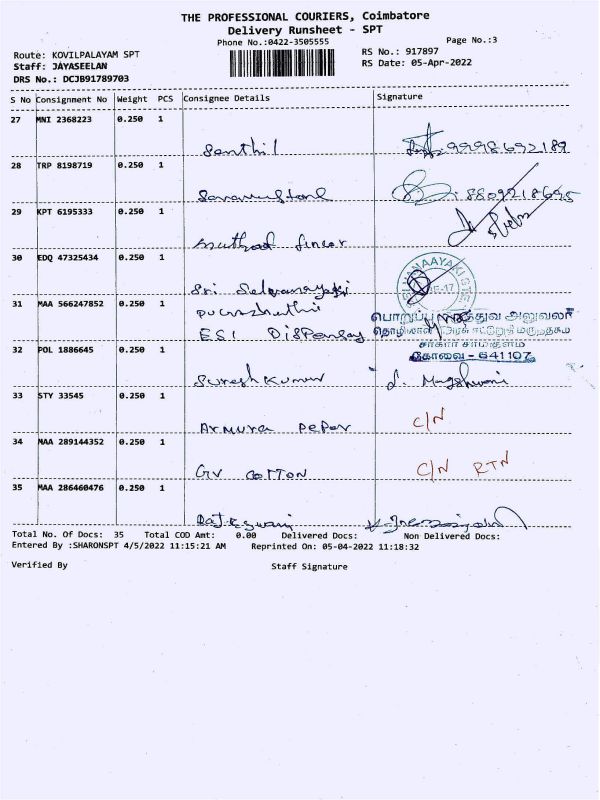 THE PROFESSIONAL COURIERS, Coimbatore
Delivery Runsheet - SPT
Phone No.:0422-3505555
Page No.:3
Route: KOVILPALAYAM SPT
RS No.: 917897
Staff: JAYASEELAN
RS Date: 05-Apr-2022
DRS No.: DCJB91789703
S No Consignment No Weight PCS Consignee Details Signature
27 MNI 2368223 0.250 1
Senthil
28 TRP 8198719 0.250 1
29 KPT 6195333 0.250 1
30 EDQ 47325434 0.250 1
Sri
31 MAA 566247852 0.250 1
ESI Dispensay
பொறுப்பு மருத்துவ அலுவலர்
கோவை - 641107
32 POL 1886645 0.250 1
Suresh Kumar
33 STY 33545 0.250 1
Armura Peper C/N
34 MAA 289144352 0.250 1
GV COTTON C/N RTN
35 MAA 286460476 0.250 1
Total No. Of Docs: 35 Total COD Amt: 0.00 Delivered Docs: Non Delivered Docs:
Entered By :SHARONSPT 4/5/2022 11:15:21 AM Reprinted On: 05-04-2022 11:18:32
Verified By Staff Signature